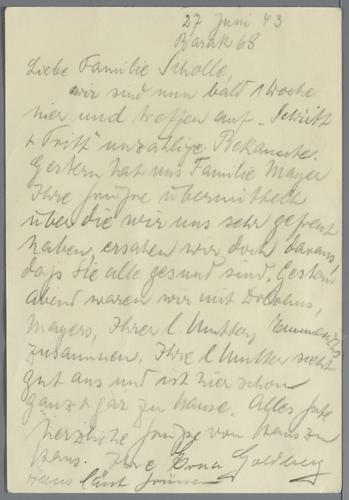 27 Juni 43
Barak 68
Liebe Familie Scholle,
wir sind nun bald 1 Woche
hier und treffen auf „Schritt
+ Tritt" unzählige Bekannte.
Gestern hat uns Familie Mayer
Ihre Grüße übermittelt
über die wir uns sehr gefreut
haben, ersahen wir doch daraus,
daß Sie alle gesund sind. Gestern
abend waren wir mit
Mayers, Ihrer l Mutter,
zusammen. Ihre l Mutter sieht
gut aus und ist hier schon
ganz + gar zu Hause. Alles Gute
herzliche Grüße von Haus zu
Haus. Ihre Erna Goldberg
Hans lässt grüssen